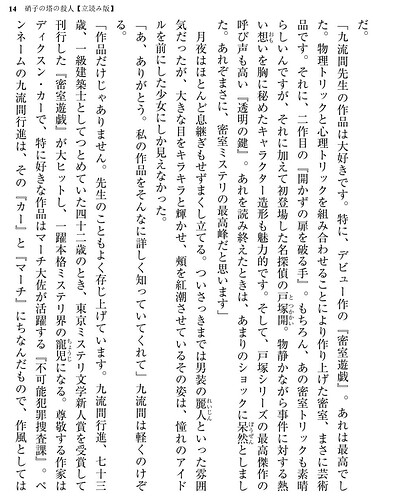 14　硝子の塔の殺人【立読み版】
だ。
「九流間先生の作品は大好きです。特に、デビュー作の『密室遊戯』。あれは最高でし
た。物理トリックと心理トリックを組み合わせることにより作り上げた密室、まさに芸術
品です。それに、二作目の『開かずの扉を破る手』。もちろん、あの密室トリックも素晴
らしいんですが、それに加えて初登場した名探偵の戸塚開。物静かながら事件に対する熱
い想いを胸に秘めたキャラクター造形も魅力的です。そして、戸塚シリーズの最高傑作の
呼び声も高い『透明の鍵』。あれを読み終えたときは、あまりのショックに呆然としまし
た。あれぞまさに、密室ミステリの最高峰だと思います」
　月夜はほとんど息継ぎもせずまくし立てる。ついさっきまでは男装の麗人といった雰囲
気だったが、大きな目をキラキラと輝かせ、頰を紅潮させているその姿は、憧れのアイド
ルを前にした少女にしか見えなかった。
「あ、ありがとう。私の作品をそんなに詳しく知っていてくれて」九流間は軽くのけぞ
「作品だけじゃありません。先生のこともよく存じ上げています。九流間行進、七十三
歳、一級建築士としてつとめていた四十二歳のとき、東京ミステリ文学新人賞を受賞して
刊行した『密室遊戯』が大ヒットし、一躍本格ミステリ界の寵児になる。尊敬する作家は
ディクスン・カーで、特に好きな作品はマーチ大佐が活躍する『不可能犯罪捜査課』。ペ
ンネームの九流間行進は、その『カー』と『マーチ』にちなんだもので、作風としては